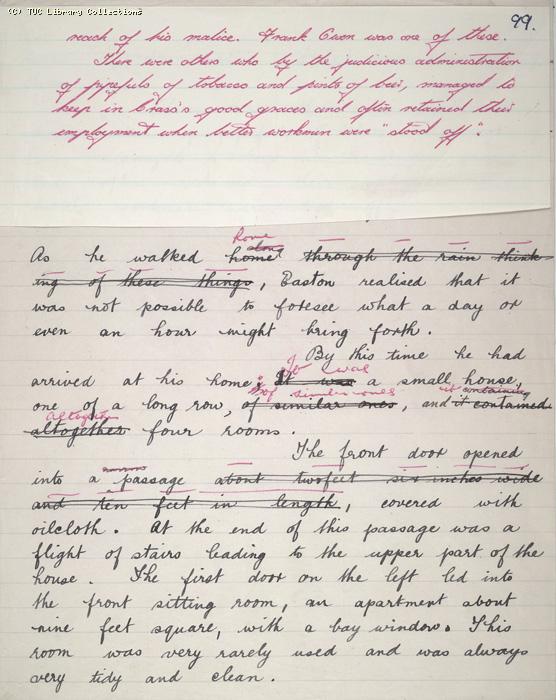 (C) TUC Library Collections
99.
reach of his malice. Frank Owen was one of these.
There were others who by the judicious administration
of pipefuls of tobacco and pints of beer, managed to
keep in Crass's good graces and often retained their
employment when better workmen were "stood off".
home
along
As he walked home through the rain think-
ing of these things, Easton realised that it
was not possible to foresee what a day or
even an hour might bring forth.
By this time he had
it was
arrived at his home; It was a small house,
of similar ones it containing
one of a long row, of similar ones, and it contained
altogether
altogether four rooms.
The front door opened
narrow
into a passage about two feet six inches wide
and ten feet in length, covered with
oilcloth. At the end of this passage was a
flight of stairs leading to the upper part of the
house. The first door on the left led into
the front sitting room, an apartment about
nine feet square, with a bay window. This
room was very rarely used and was always
very tidy and clean.